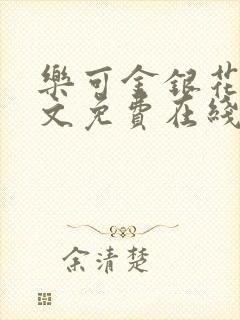 樂可金銀花
文免費在綫
余清楚